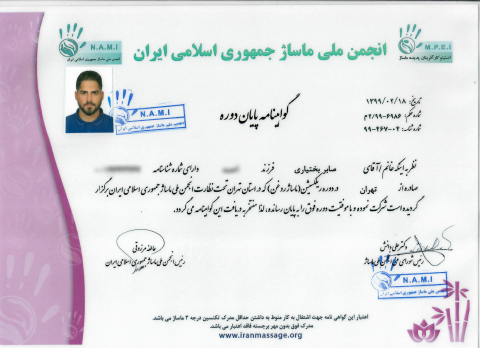 N.A.M.I
انجمن ملی ماساژ جمهوری اسلامی ایران
انجمن ملی ماساژ جمهوری اسلامی ایران
M.P.E.I
گواهینامه پایان دوره
تاریخ: ۱۳۹۹/۰۲/۱۸
۲/۹۹-۶۹۸۶
۹۹-۴۶۷-۰۲
N.A.M.I
انجمن ملی ماساژ جمهوری اسلامی ایران
نظر به اینکه خانم / آقای صابر بختیاری فرزند دارای شماره شناسنامه
صادره از تهران در دوره ریلکسیشن (ماساژ روغن) که در استان تهران تحت نظارت انجمن ملی ماساژ جمهوری اسلامی ایران برگزار
گردیده است شرکت نموده و با موفقیت دوره فوق را به پایان رسانده، لذا مفتخر به دریافت این گواهینامه می گردد.
دکتر علی دانش
رئیس شورای
ماساژ
رئیس انجمن ملی ماساژ جمهوری اسلامی ایران
N.A.M.I
انجمن ملی ماساژ جمهوری اسلامی ایران
اعتبار این گواهی نامه جهت اشتغال به کار منوط به داشتن حداقل مدرک تکنسین درجه ۲ ماساژ می باشد.
مدرک فوق بدون مهر برجسته فاقد اعتبار می باشد
www.iranmassage.org